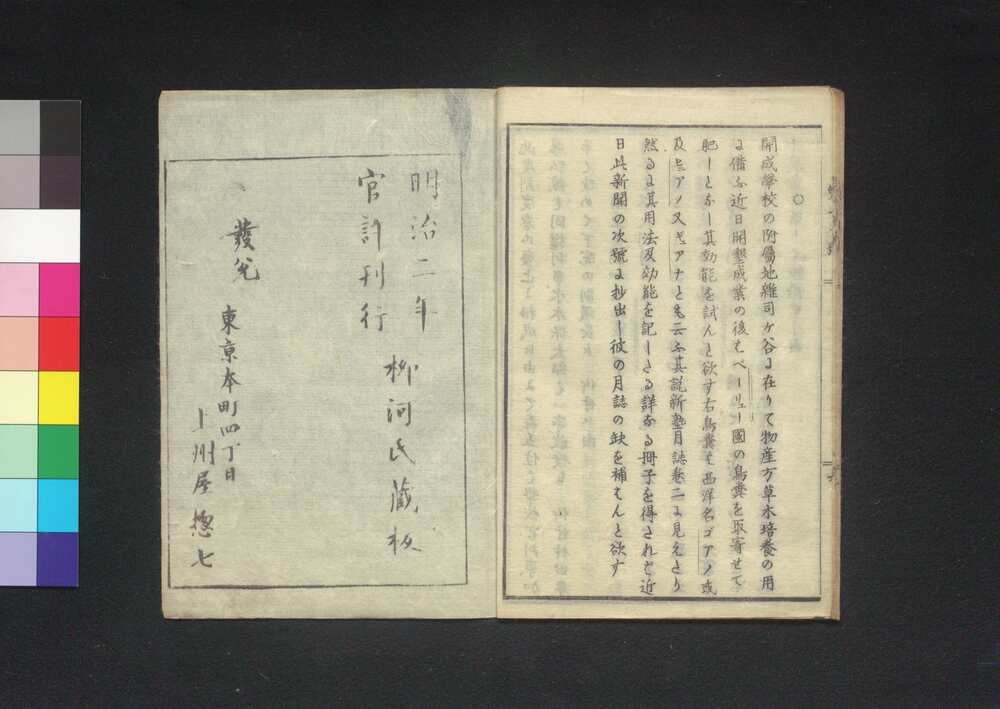 ○
開成學校の附屬地雜司ヶ谷に在りて物產方草木培養の用
に備ふ近日開墾成業の後はペーリュー國の鳥糞を取寄せて
肥しとなし其効能を試んと欲す右鳥糞は西洋名ゴアノ或
及ヒアノ又ギアナとも云ふ其説新塾月誌卷二に見えたり
然るに其用法及効能を記したる詳なる冊子を得されと近
日此新聞の次號に抄出し彼の月誌の缺を補はんと欲す
明治二年
官許刊行
柳河氏藏板
發兌
東京本町四丁目
上州屋惣七